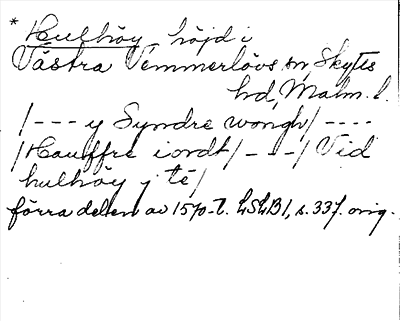 * Hulhöy, höjd i
Västra Vemmerlövs sn, Skytts
hd, Malm. l.
/--- y Syndre wongh/----
/Hauffre iordt/---/ Vid
hulhöy j té/
förra delen av 1570-t. LSLB1, s. 337. orig.